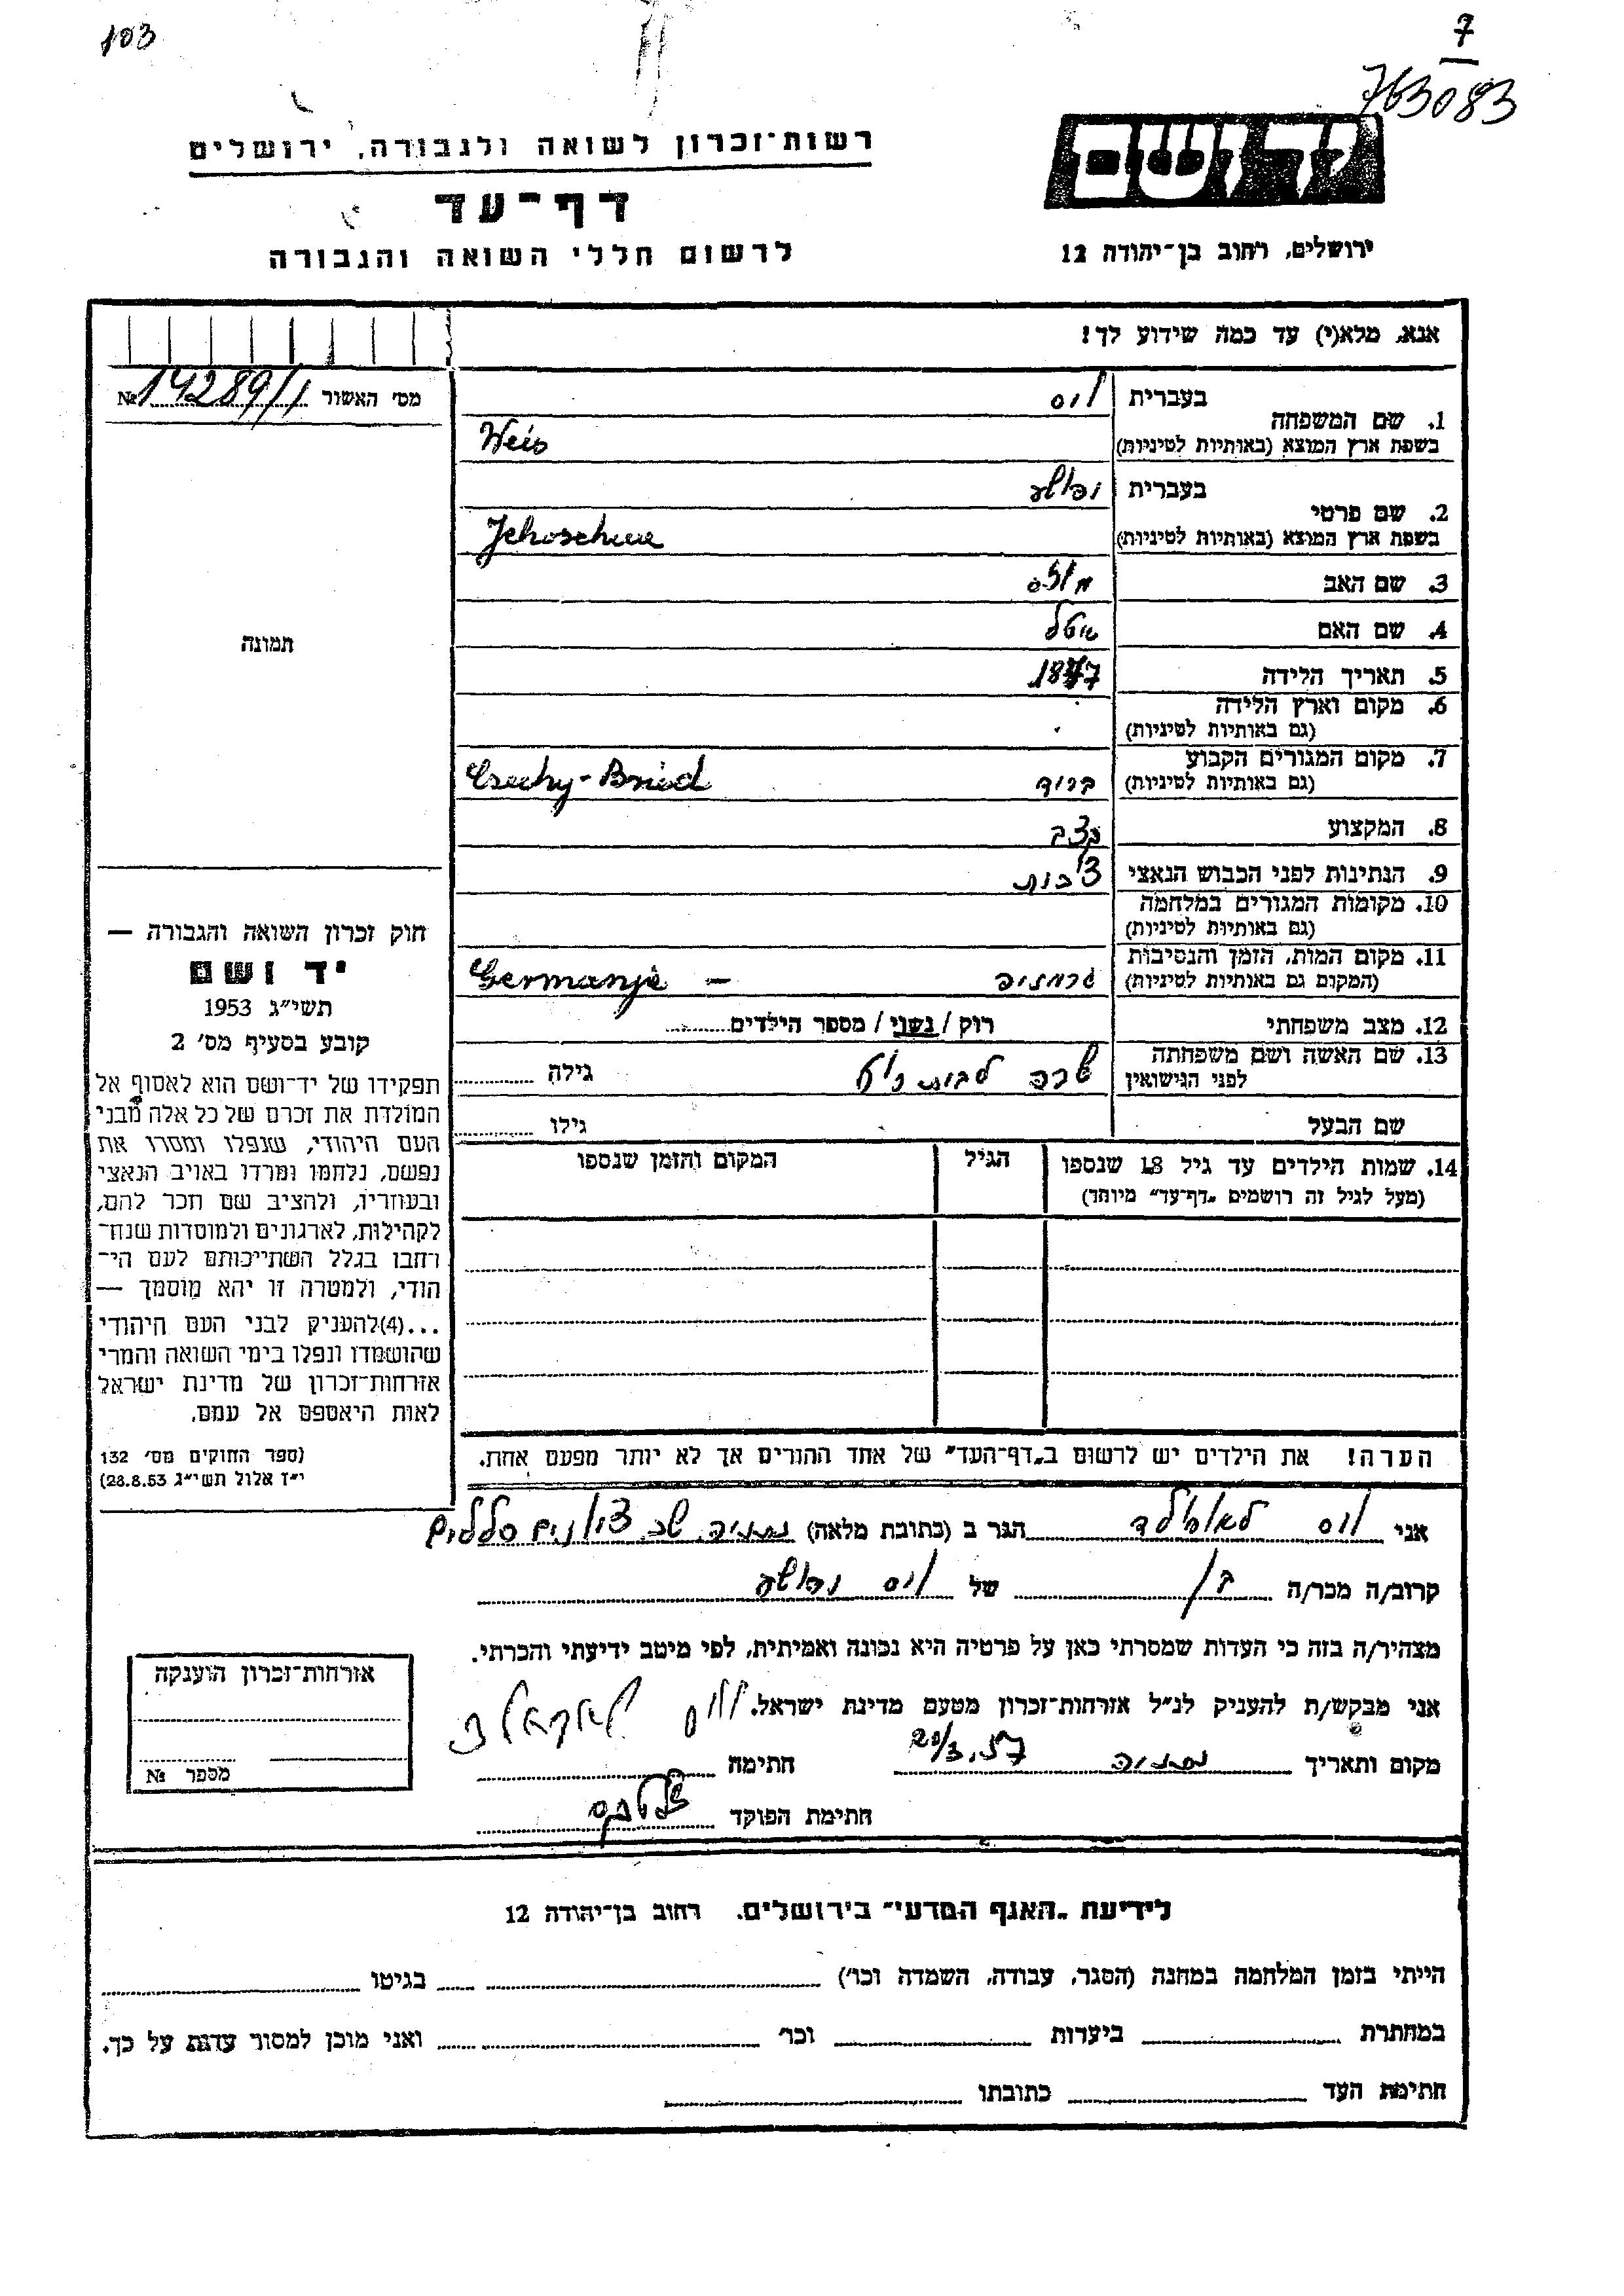 103
7
763083
רשות־זכרון לשואה ולגבורה, ירושלים
יד ושם
דף־עד
לרשום חללי השואה והגבורה
ירושלים, רחוב בן־יהודה 12
אנא, מלא(י) עד כמה שידוע לך!
מס׳ האשור № 14289/1
1. שם המשפחה
בעברית
ויס
בשפת ארץ המוצא (באותיות לטיניות)
Weis
2. שם פרטי
בעברית
יהושע
בשפת ארץ המוצא (באותיות לטיניות)
Jehoschua
3. שם האב
4. שם האם
5. תאריך הלידה
1877
6. מקום וארץ הלידה
(גם באותיות לטיניות)
7. מקום המגורים הקבוע
(גם באותיות לטיניות)
ברוד
8. המקצוע
קצב
9. הנתינות לפני הכבוש הנאצי
צ׳כית
10. מקומות המגורים במלחמה
(גם באותיות לטיניות)
11. מקום המות, הזמן והנסיבות
(המקום גם באותיות לטיניות)
גרמניה – Germanje
12. מצב משפחתי
רוק / נשוי / מספר הילדים
13. שם האשה ושם משפחתה
לפני הנישואין
שרה לבוביץ גילה
שם הבעל גילו
14. שמות הילדים עד גיל 18 שנספו
(מעל לגיל זה רושמים „דף־עד״ מיוחד)
הגיל
המקום והזמן שנספו
הערה! את הילדים יש לרשום ב„דף־העד״ של אחד ההורים אך לא יותר מפעם אחת.
תמונה
חוק זכרון השואה והגבורה —
יד ושם
תשי״ג 1953
קובע בסעיף מס׳ 2
תפקידו של יד־ושם הוא לאסוף אל
המולדת את זכרם של כל אלה מבני
העם היהודי, שנפלו ומסרו את
נפשם, נלחמו ומרדו באויב הנאצי
ובעוזריו, ולהציב שם וזכר להם,
לקהילות, לארגונים ולמוסדות שנח־
רחבו בגלל השתייכותם לעם הי־
הודי, ולמטרה זו יהא מוסמך —
...(4)להעניק לבני העם היהודי
שהושמדו ונפלו בימי השואה והמרי
אזרחות־זכרון של מדינת ישראל
לאות היאספם אל עמם.
(ספר החוקים מס׳ 132
י״ז אלול תשי״ג 28.8.53)
אני ויס לאופולד הגר ב (כתובת מלאה) נתניה
קרוב/ה מכר/ה בן של ויס יהושע
מצהיר/ה בזה כי העדות שמסרתי כאן על פרטיה היא נכונה ואמיתית, לפי מיטב ידיעתי והכרתי.
אני מבקש/ת להעניק לנ״ל אזרחות־זכרון מטעם מדינת ישראל.
מקום ותאריך נתניה 20/3.57 חתימה
חתימת הפוקד
אזרחות־זכרון הוענקה
מספר №
לידיעת „האגף המדעי״ בירושלים. רחוב בן־יהודה 12
הייתי בזמן המלחמה במחנה (הסגר, עבודה, השמדה וכו׳) בגיטו
במחתרת ביערות וכו׳ ואני מוכן למסור עדות על כך.
חתימת העד כתובתו